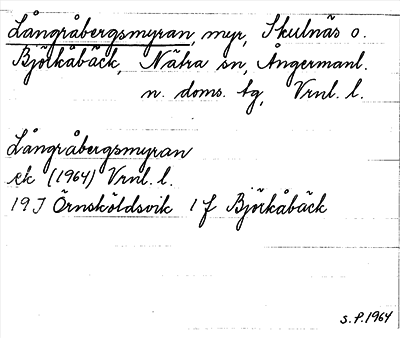 Långråbergsmyran, myr, Skulnäs o.
Björkåbäck, Nätra sn, Ångermanl.
n. doms. tg, Vrnl. l.
Långråbergsmyran
ek (1964) Vrnl. l.
19 J Örnsköldsvik 1 f Björkåbäck
S.P. 1964